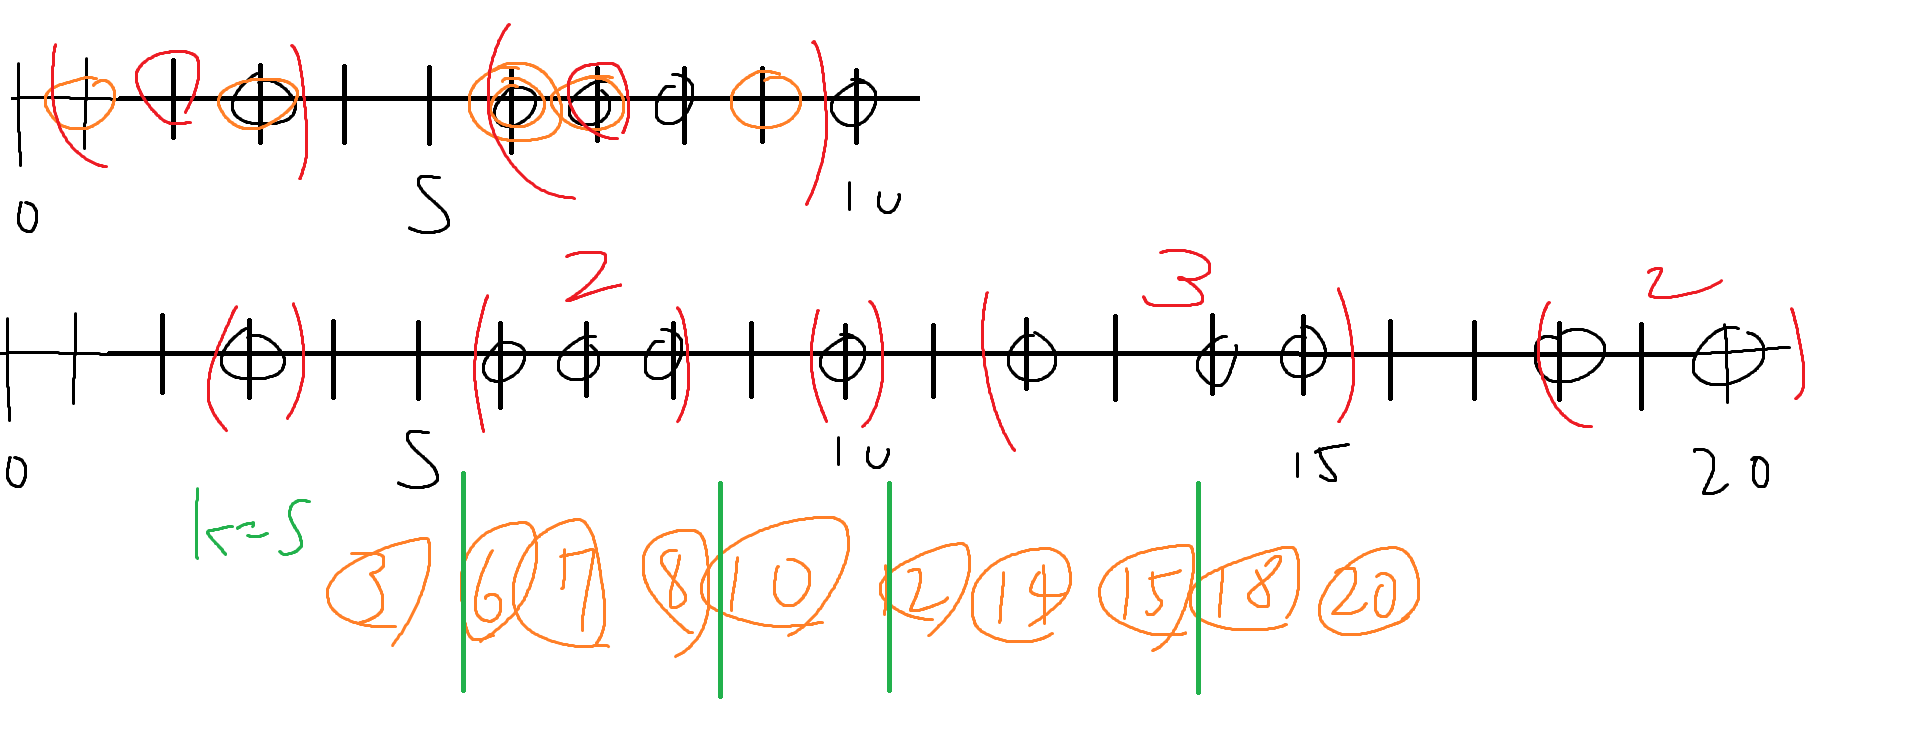 0 5 10
2 3 2
0 5 10 15 20
k=5
3 6 7 8 10 12 14 15 18 20